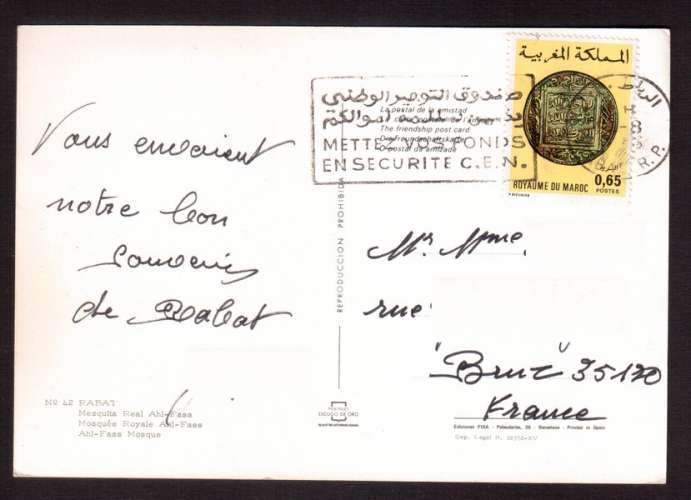 Vous envoient
notre bon
Souvenir
de Rabat
No 42 RABAT
Mezquita Real Ahl-Fass
Mosquée Royale Ahl-Fass
Ahl-Fass Mosque
REPRODUCCION PROHIBIDA
ESCUDO DE ORO
صندوق التوفير الوطني
أموالكم
METTEZ VOS FONDS
EN SECURITE C.E.N.
La postal de la amistad
The friendship post card
O postal da amizade
المملكة المغربية
ROYAUME DU MAROC
0,65
POSTES
الرباط
R.P.
Mr Mme
rue
"Bruz" 35170
France
Ediciones FISA - Palaudarias, 26 - Barcelona - Printed in Spain